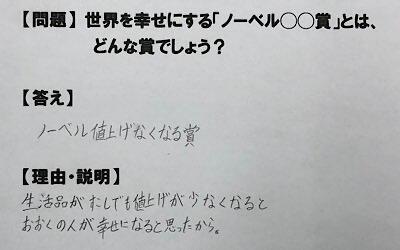 【問題】世界を幸せにする「ノーベル〇〇賞」とは、
どんな賞でしょう？
【答え】
ノーベル値上げなくなる賞
【理由・説明】
生活品が少しでも値上げが少なくなると
おおくの人が幸せになると思ったから。